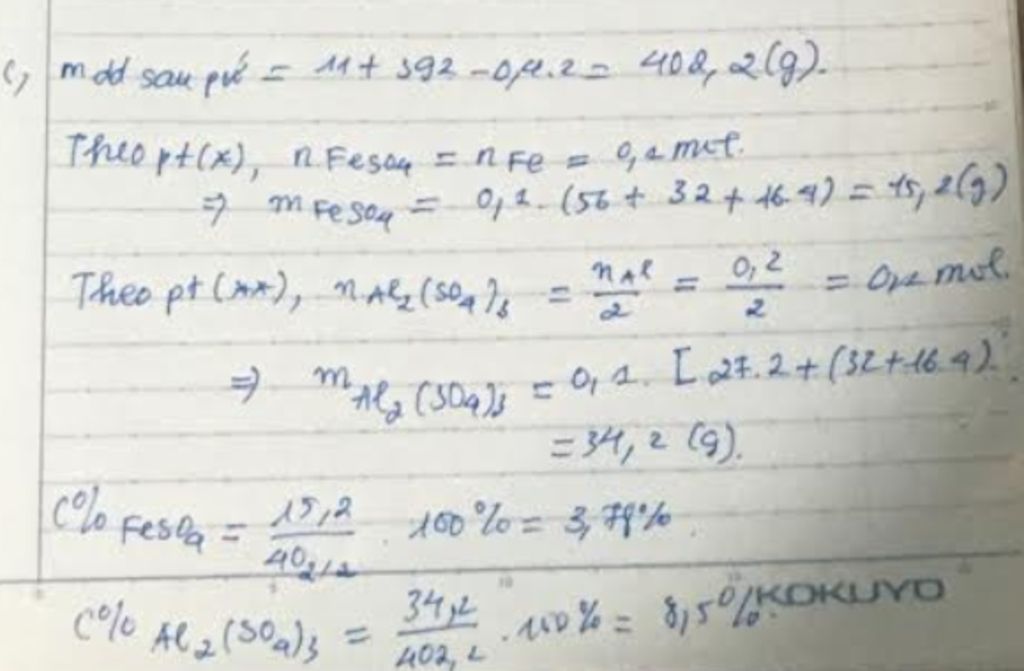 c, m dd sau pứ = 11 + 392 - 0,4.2 = 402,2(g).
Theo pt(*), n FeSO4 = n Fe = 0,1 mol.
=> m FeSO4 = 0,1. (56 + 32 + 16.4) = 15,2(g)
Theo pt(**), n Al2(SO4)3 = nAl/2 = 0,2/2 = 0,1 mol.
=> m Al2(SO4)3 = 0,1. [27.2 + (32+16.4).
= 34,2 (g).
C% FeSO4 = 15,2/402,2 . 100% = 3,78%.
KOKUYO
C% Al2(SO4)3 = 34,2/402,2 . 100% = 8,5%.